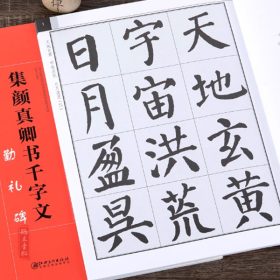 天地玄黄
宇宙洪荒
日月盈昃
集颜真卿书千字文
勤礼碑